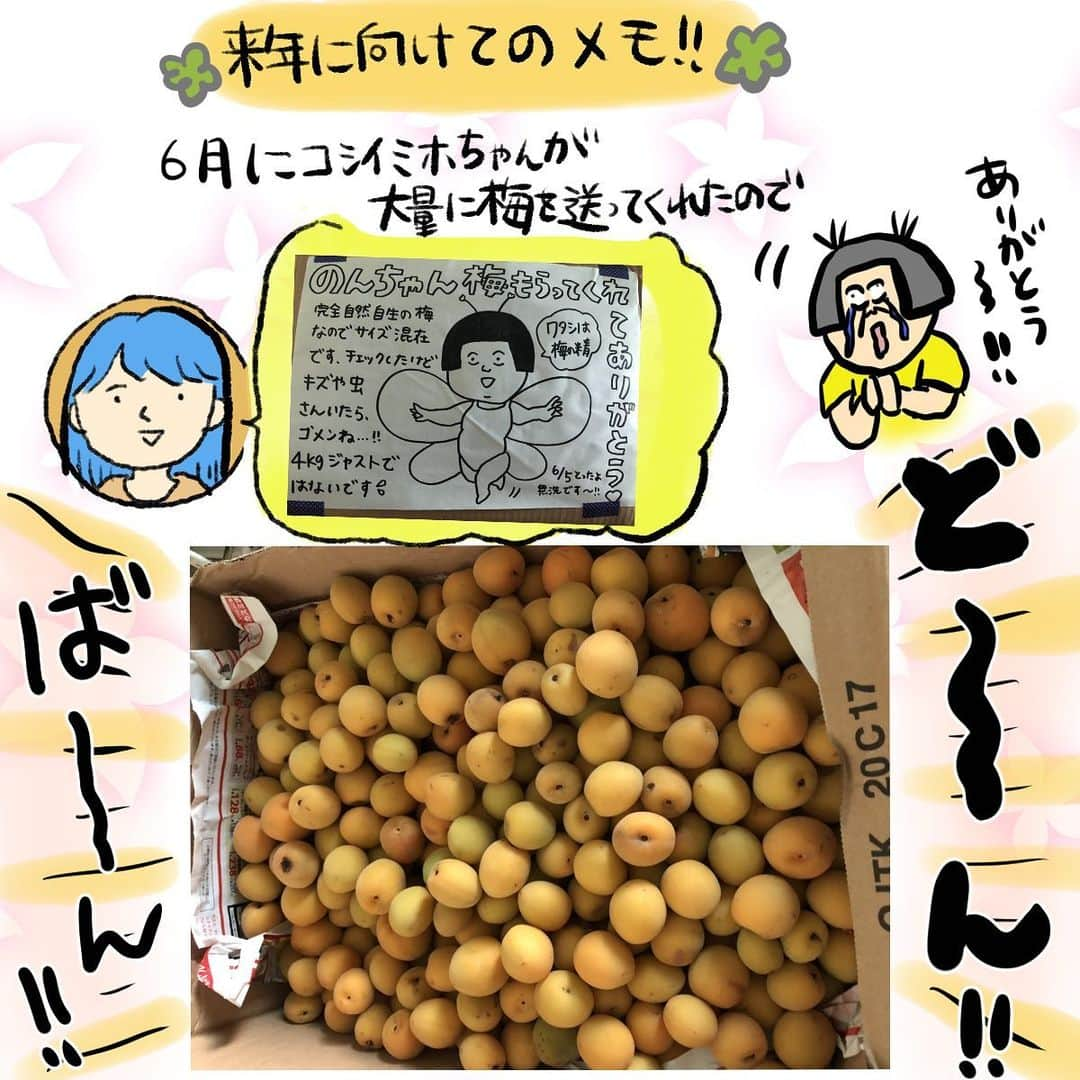 来年に向けてのメモ!!
6月にコシイミホちゃんが
大量に梅を送ってくれたので
ありがとう〜!!
のんちゃん梅もらってくれてありがとう♡
完全自然自生の梅
なのでサイズ混在
です、チェックしたけど
キズや虫
さんいたら、
ゴメンね…!!
4kgジャストで
はないです
ワタシは
梅の精
6/5とったよ
無洗です〜!!
ど〜ん!!
ば〜ん!!
20C17